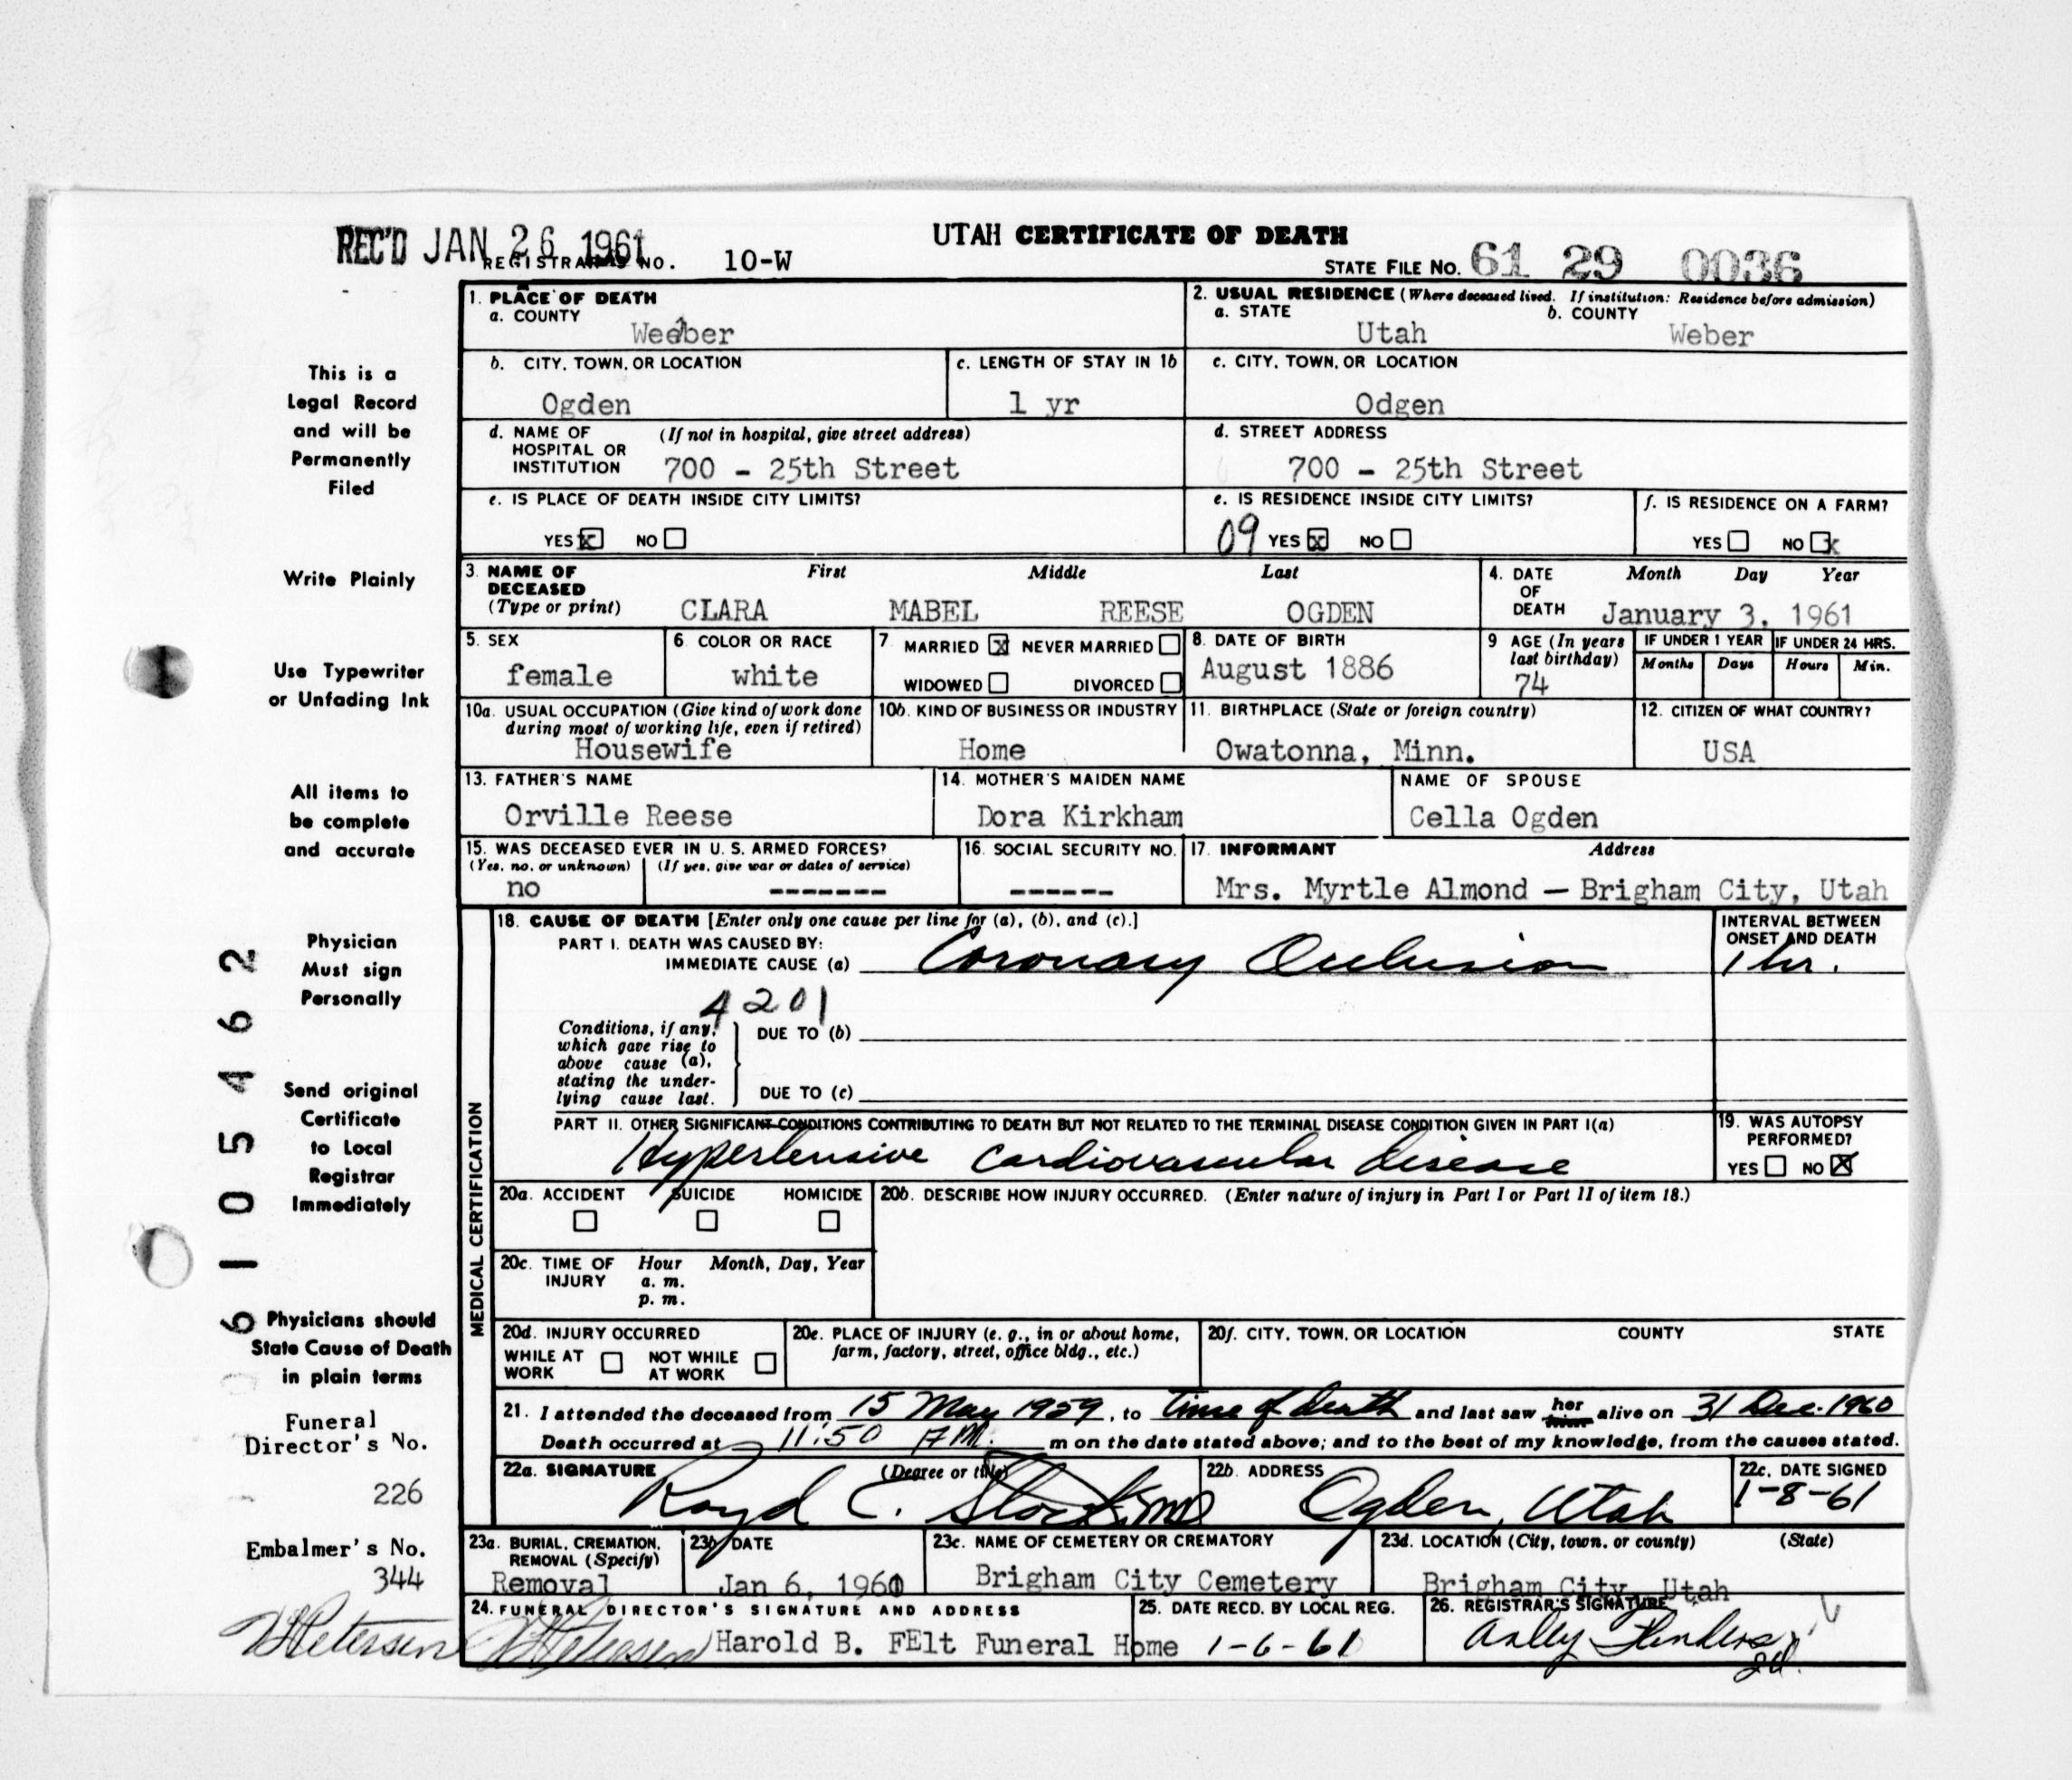 REC'D JAN 26 1961
UTAH CERTIFICATE OF DEATH
REGISTRAR'S NO. 10-W
STATE FILE NO. 61 29 0036
1. PLACE OF DEATH
a. COUNTY
Weeber
2. USUAL RESIDENCE (Where deceased lived. If institution: Residence before admission)
a. STATE b. COUNTY
Utah Weber
b. CITY, TOWN, OR LOCATION
Ogden
c. LENGTH OF STAY IN 1b
1 yr
c. CITY, TOWN, OR LOCATION
Odgen
d. NAME OF (If not in hospital, give street address)
HOSPITAL OR
INSTITUTION 700 - 25th Street
d. STREET ADDRESS
700 - 25th Street
e. IS PLACE OF DEATH INSIDE CITY LIMITS?
YES x NO
e. IS RESIDENCE INSIDE CITY LIMITS?
09 YES x NO
f. IS RESIDENCE ON A FARM?
YES NO x
3. NAME OF First Middle Last
DECEASED
(Type or print) CLARA MABEL REESE OGDEN
4. DATE Month Day Year
OF
DEATH January 3, 1961
5. SEX
female
6. COLOR OR RACE
white
7 MARRIED x NEVER MARRIED
WIDOWED DIVORCED
8. DATE OF BIRTH
August 1886
9 AGE (In years
last birthday)
74
IF UNDER 1 YEAR IF UNDER 24 HRS.
Months Days Hours Min.
10a. USUAL OCCUPATION (Give kind of work done
during most of working life, even if retired)
Housewife
10b. KIND OF BUSINESS OR INDUSTRY
Home
11. BIRTHPLACE (State or foreign country)
Owatonna, Minn.
12. CITIZEN OF WHAT COUNTRY?
USA
13. FATHER'S NAME
Orville Reese
14. MOTHER'S MAIDEN NAME
Dora Kirkham
NAME OF SPOUSE
Cella Ogden
15. WAS DECEASED EVER IN U. S. ARMED FORCES?
(Yes, no, or unknown) (If yes, give war or dates of service)
no -------
16. SOCIAL SECURITY NO.
------
17. INFORMANT Address
Mrs. Myrtle Almond — Brigham City, Utah
MEDICAL CERTIFICATION
18. CAUSE OF DEATH [Enter only one cause per line for (a), (b), and (c).]
PART I. DEATH WAS CAUSED BY:
IMMEDIATE CAUSE (a) Coronary Occlusion
INTERVAL BETWEEN
ONSET AND DEATH
1 hr.
4201
Conditions, if any,
which gave rise to
above cause (a),
stating the under-
lying cause last.
DUE TO (b)
DUE TO (c)
PART II. OTHER SIGNIFICANT CONDITIONS CONTRIBUTING TO DEATH BUT NOT RELATED TO THE TERMINAL DISEASE CONDITION GIVEN IN PART I(a)
Hypertensive Cardiovascular disease
19. WAS AUTOPSY
PERFORMED?
YES NO x
20a. ACCIDENT SUICIDE HOMICIDE
20b. DESCRIBE HOW INJURY OCCURRED. (Enter nature of injury in Part I or Part II of item 18.)
20c. TIME OF Hour Month, Day, Year
INJURY a. m.
p. m.
20d. INJURY OCCURRED
WHILE AT NOT WHILE
WORK AT WORK
20e. PLACE OF INJURY (e. g., in or about home,
farm, factory, street, office bldg., etc.)
20f. CITY, TOWN, OR LOCATION COUNTY STATE
21. I attended the deceased from 15 May 1959, to time of death and last saw her him alive on 31 Dec. 1960
Death occurred at 11:50 PM. m on the date stated above; and to the best of my knowledge, from the causes stated.
22a. SIGNATURE (Degree or title)
Royd C. MD
22b. ADDRESS
Ogden, Utah
22c. DATE SIGNED
1-8-61
23a. BURIAL, CREMATION,
REMOVAL (Specify)
Removal
23b. DATE
Jan 6, 1961
23c. NAME OF CEMETERY OR CREMATORY
Brigham City Cemetery
23d. LOCATION (City, town, or county) (State)
Brigham City, Utah
24. FUNERAL DIRECTOR'S SIGNATURE AND ADDRESS
Petersen Harold B. FElt Funeral Home
25. DATE RECD. BY LOCAL REG.
1-6-61
26. REGISTRAR'S SIGNATURE
This is a
Legal Record
and will be
Permanently
Filed
Write Plainly
Use Typewriter
or Unfading Ink
All items to
be complete
and accurate
Physician
Must sign
Personally
Send original
Certificate
to Local
Registrar
Immediately
Physicians should
State Cause of Death
in plain terms
Funeral
Director's No.
226
Embalmer's No.
344
Petersen
6105462